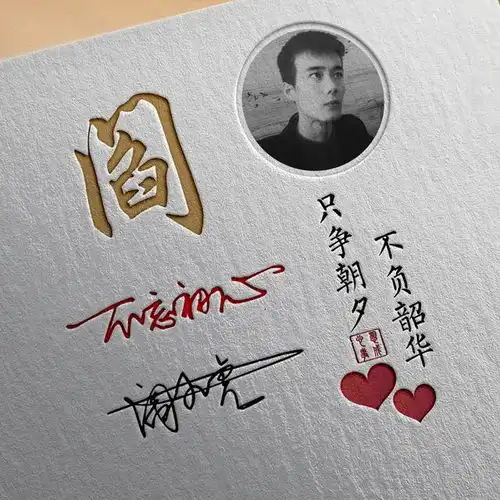 阎
不忘初心
只争朝夕
不负韶华